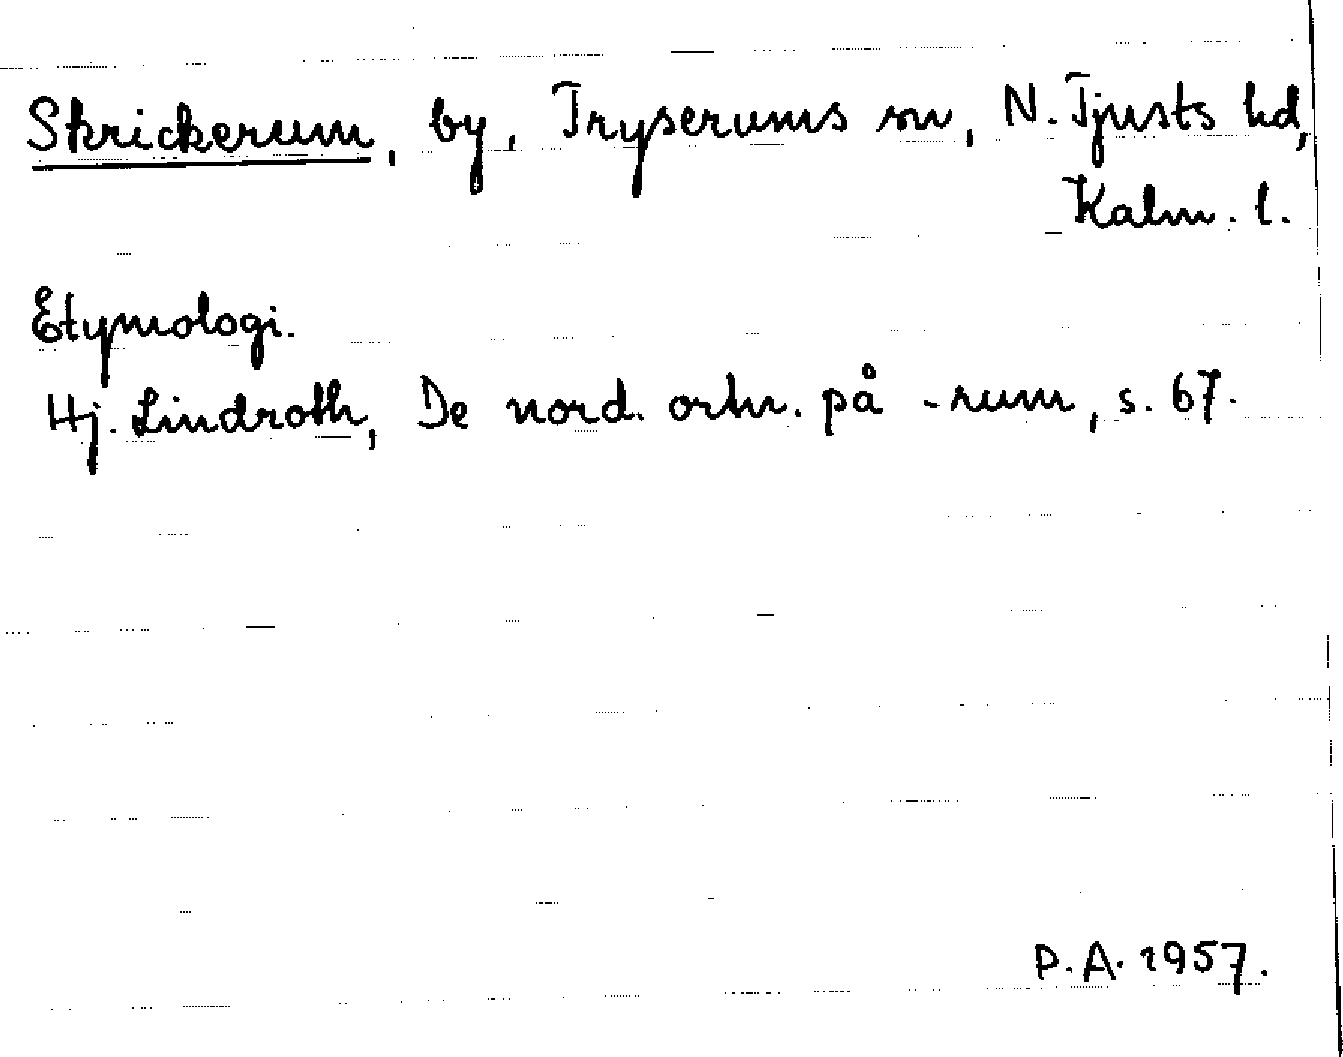 Skrickerum, by, Tryserums sn, N. Tjusts hd,
Kalm. l.
Etymologi.
Hj. Lindroth, De nord. ortn. på -rum, s. 67.
P.A. 1957.